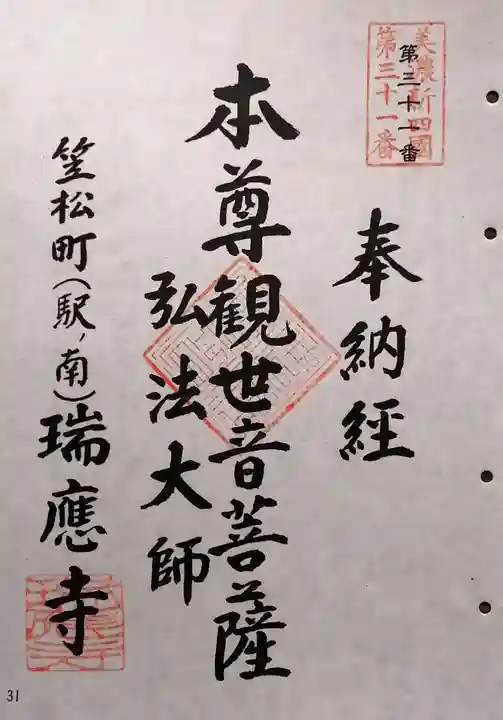 美濃新四國
第三十一番
第三十一番
奉納經
本尊観世音菩薩
弘法大師
笠松町(駅ノ南)瑞應寺
31